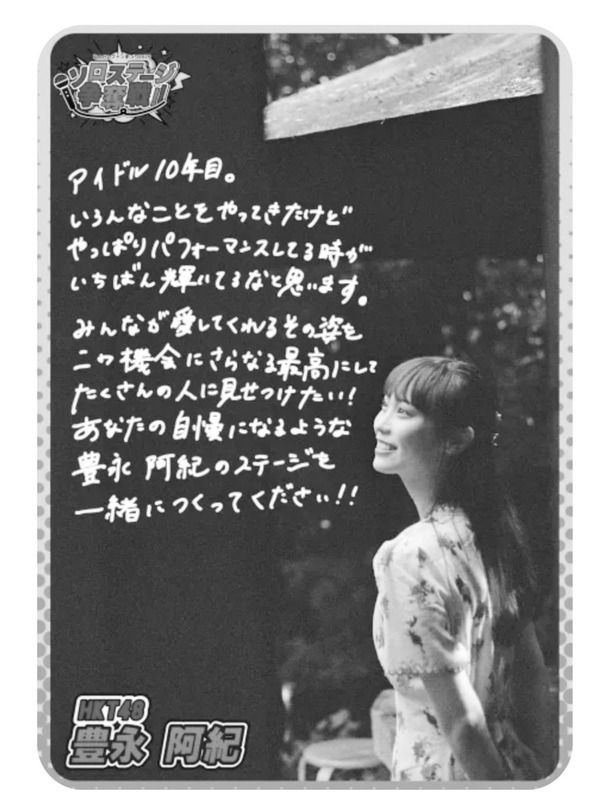 ソロステージ
争奪戦!!
アイドル10年目。
いろんなことをやってきたけど
やっぱりパフォーマンスしてる時が
いちばん輝いてるなと思います。
みんなが愛してくれるその姿を
この機会にさらなる最高にして
たくさんの人に見せつけたい!
あなたの自慢になるような
豊永 阿紀のステージを
一緒につくってください!!
HKT48
豊永 阿紀